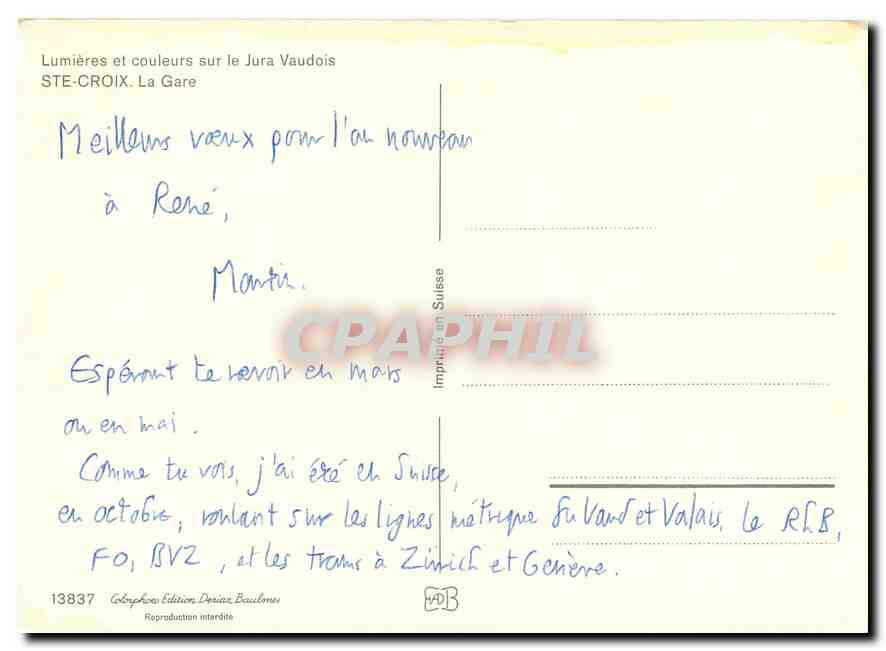 Lumières et couleurs sur le Jura Vaudois
STE-CROIX. La Gare
Meilleurs vœux pour l'an nouveau
à René,
Martin.
Imprimé en Suisse
CPAPHIL
Espérant te revoir en mars
ou en mai.
Comme tu vois, j'ai été en Suisse,
en octobre, roulant sur les lignes métrique du Vaud et Valais, le RhB,
FO, BVZ, et les trams à Zürich et Genève.
13837 Colorphoto Edition Deriaz Baulmes
Reproduction interdite